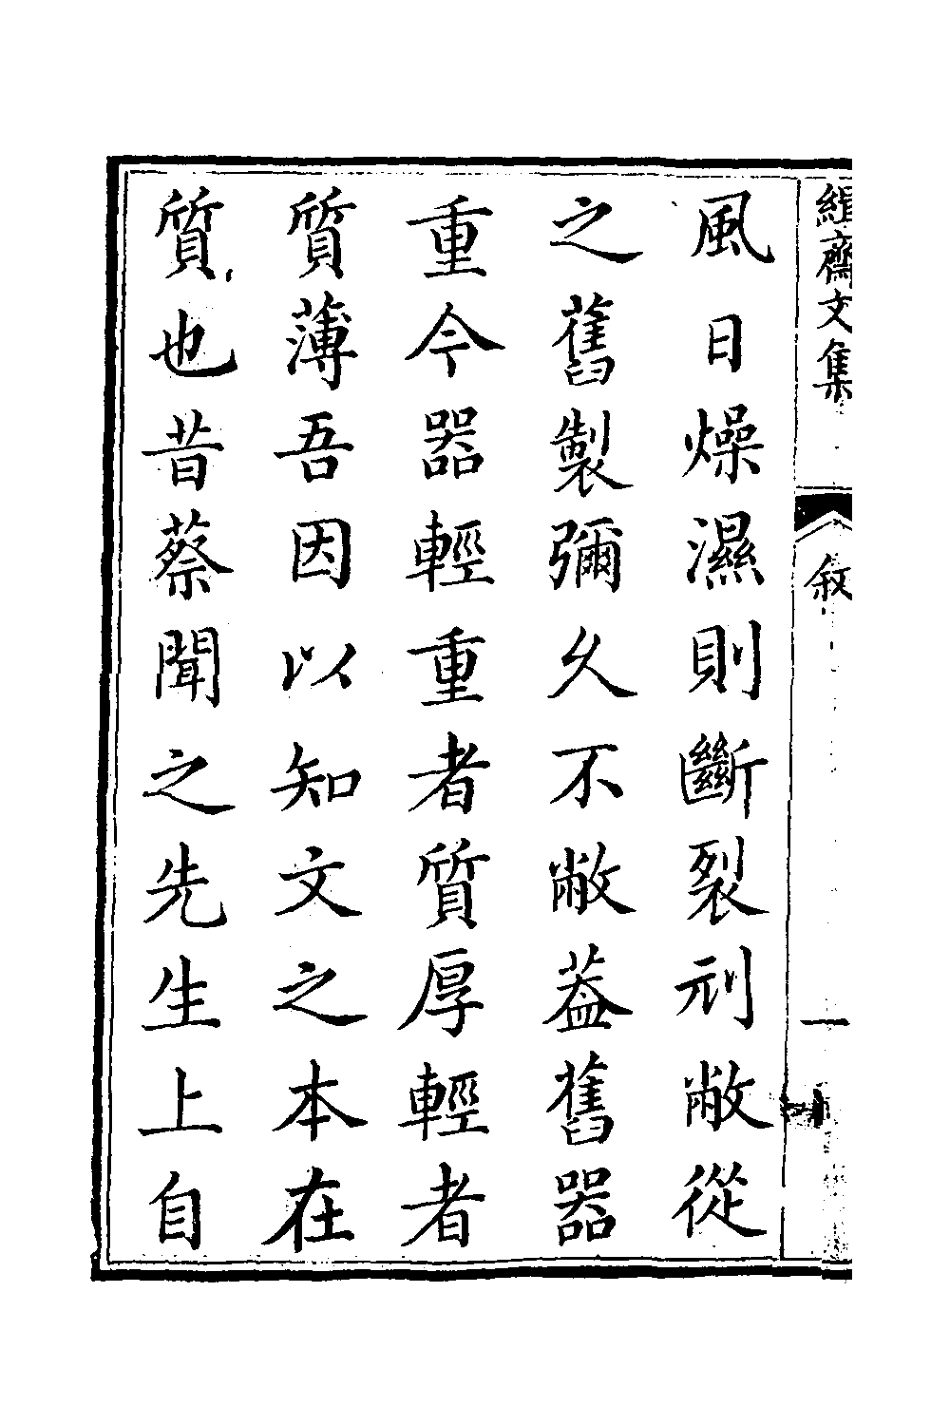 緝齋文集
敘
一
風日燥濕則斷裂刓敝從
之舊製彌久不敝蓋舊器
重今器輕重者質厚輕者
質薄吾因以知文之本在
質也昔蔡聞之先生上自